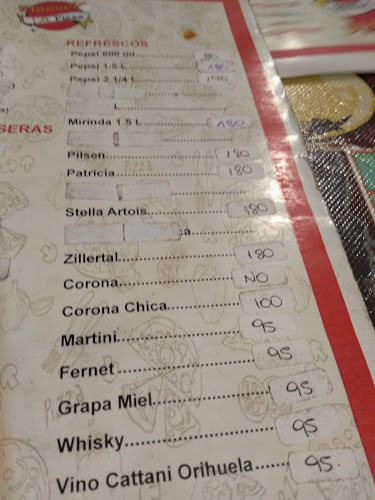 REFRESCOS
Pepsi 600 ml
Pepsi 1.5 L
Pepsi 2 1/4 L
L
Mirinda 1.5 L 180
SERAS
Pilsen 180
Patricia 180
Stella Artois 180
a
Zillertal 180
Corona NO
Corona Chica 100
Martini 95
Fernet 95
Grapa Miel 95
Whisky 95
Vino Cattani Orihuela 95